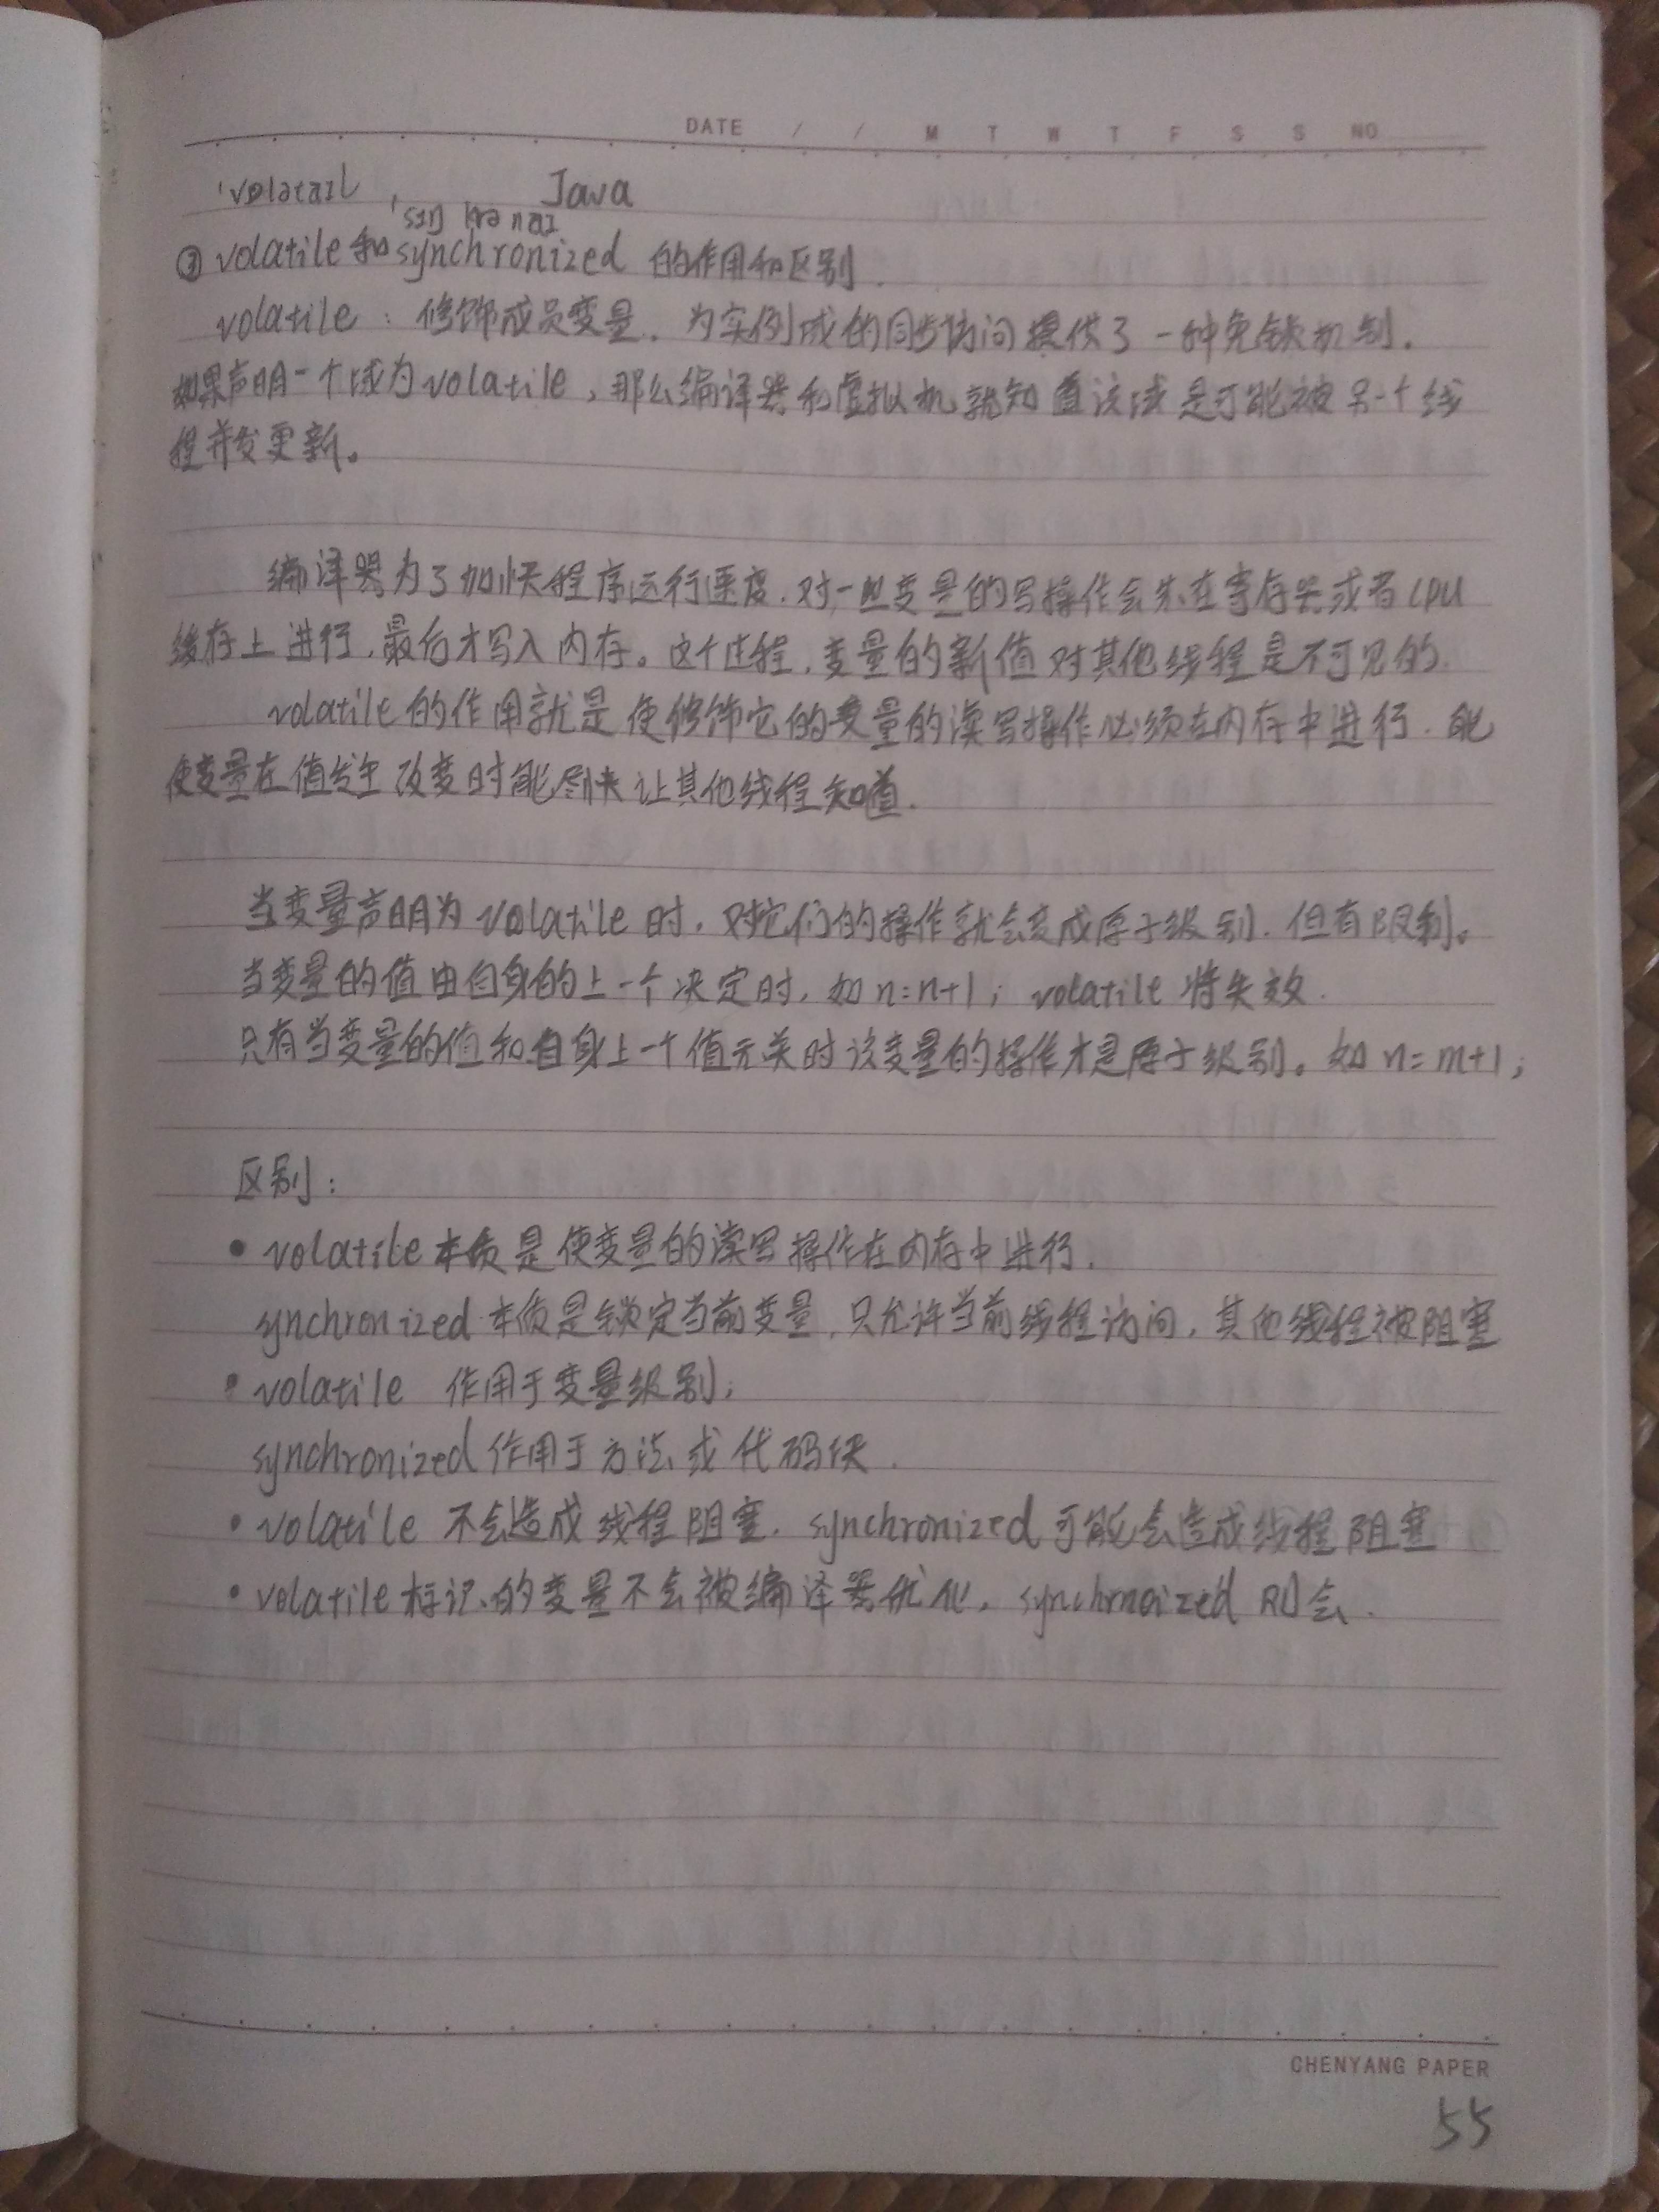 DATE / / M T W T F S S NO
'vɒlətaɪl Java
'sɪŋkrənaɪ
③ volatile 和 synchronized 的作用和区别.
volatile：修饰成员变量，为实例域的同步访问提供了一种免锁机制.
如果声明一个域为volatile，那么编译器和虚拟机就知道该域是可能被另一个线
程并发更新。
编译器为了加快程序运行速度，对一些变量的写操作会先在寄存器或者CPU
缓存上进行，最后才写入内存。这个过程，变量的新值对其他线程是不可见的.
volatile的作用就是使修饰它的变量的读写操作必须在内存中进行. 能
使变量在值发生改变时能尽快让其他线程知道.
当变量声明为 volatile 时，对它们的操作就会变成原子级别. 但有限制。
当变量的值由自身的上一个决定时，如 n=n+1; volatile 将失效.
只有当变量的值和自身上一个值无关时该变量的操作才是原子级别。如 n=m+1;
区别：
• volatile本质是使变量的读写操作在内存中进行.
synchronized 本质是锁定当前变量，只允许当前线程访问，其他线程被阻塞
• volatile 作用于变量级别;
synchronized 作用于方法或代码块.
• volatile 不会造成线程阻塞. synchronized 可能会造成线程阻塞
• volatile标识的变量不会被编译器优化，synchrnoized 则会.
CHENYANG PAPER
55